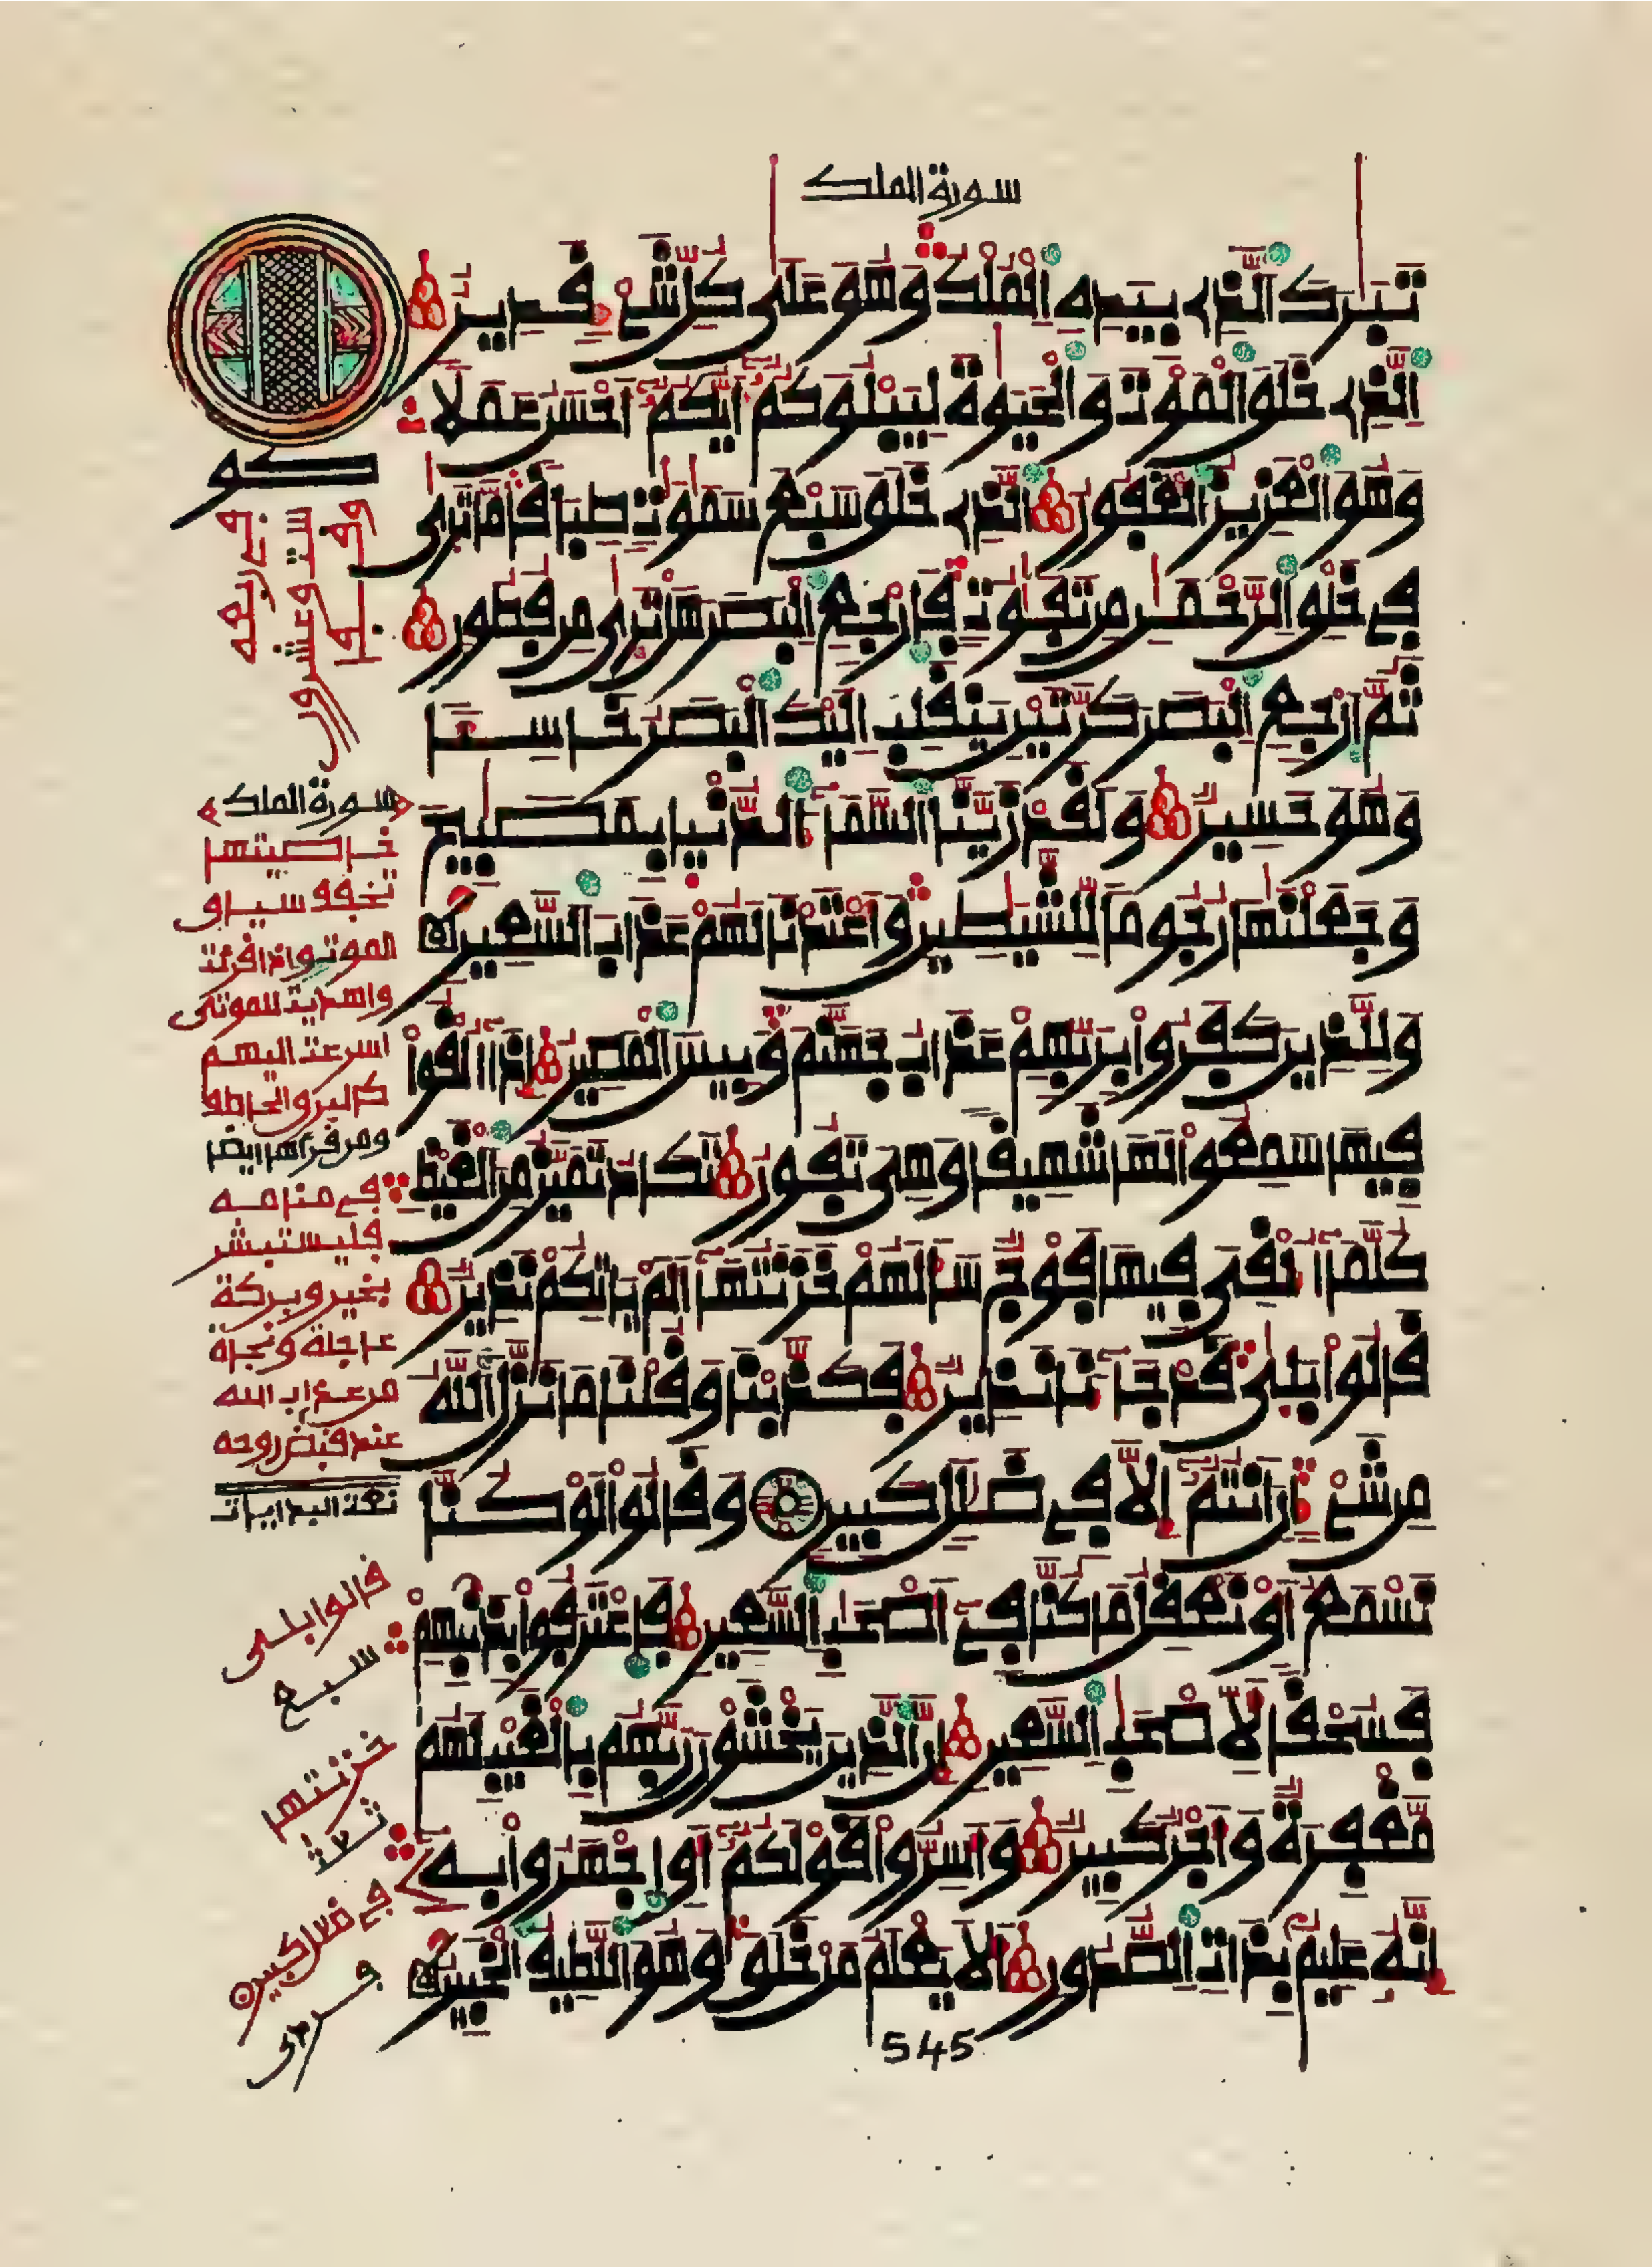 سورة الملك
تبرك الذي بيده الملك وهو على كل شيء قدير
الذي خلق الموت والحيوة ليبلوكم أيكم أحسن عملا
وهو العزيز الغفور الذي خلق سبع سموت طباقا ما ترى
في خلق الرحمن من تفوت فارجع البصر هل ترى من فطور
ثم ارجع البصر كرتين ينقلب إليك البصر خاسئا
وهو حسير ولقد زينا السماء الدنيا بمصبيح
وجعلنها رجوما للشيطين وأعتدنا لهم عذاب السعير
وللذين كفروا بربهم عذاب جهنم وبيس المصير إذا ألقوا
فيها سمعوا لها شهيقا وهي تفور تكاد تميز من الغيظ
كلما ألقي فيها فوج سألهم خزنتها ألم ياتكم نذير
قالوا بلى قد جاءنا نذير فكذبنا وقلنا ما نزل الله
من شيء ان أنتم إلا في ضلل كبير وقالوا لو كنا
نسمع أو نعقل ما كنا في أصحب السعير فاعترفوا بذنبهم
فسحقا لأصحب السعير إن الذين يخشون ربهم بالغيب لهم
مغفرة وأجر كبير وأسروا قولكم أو اجهروا به
إنه عليم بذات الصدور ألا يعلم من خلق وهو اللطيف الخبير
كو
ست وعشرون
سورة الملك
خاصيتها
تخفف سياق
الموت وإذا قرئت
واهديت للموتى
اسرعت اليهم
كالبرق الخاطف
ومن قرأها ايضا
في منامه
فليستبشر
بخير وبركة
عاجلة ونجاة
من عذاب الله
عند قبض روحه
قالوا بلى
سبع
خزنتها
في ضلل كبير
545